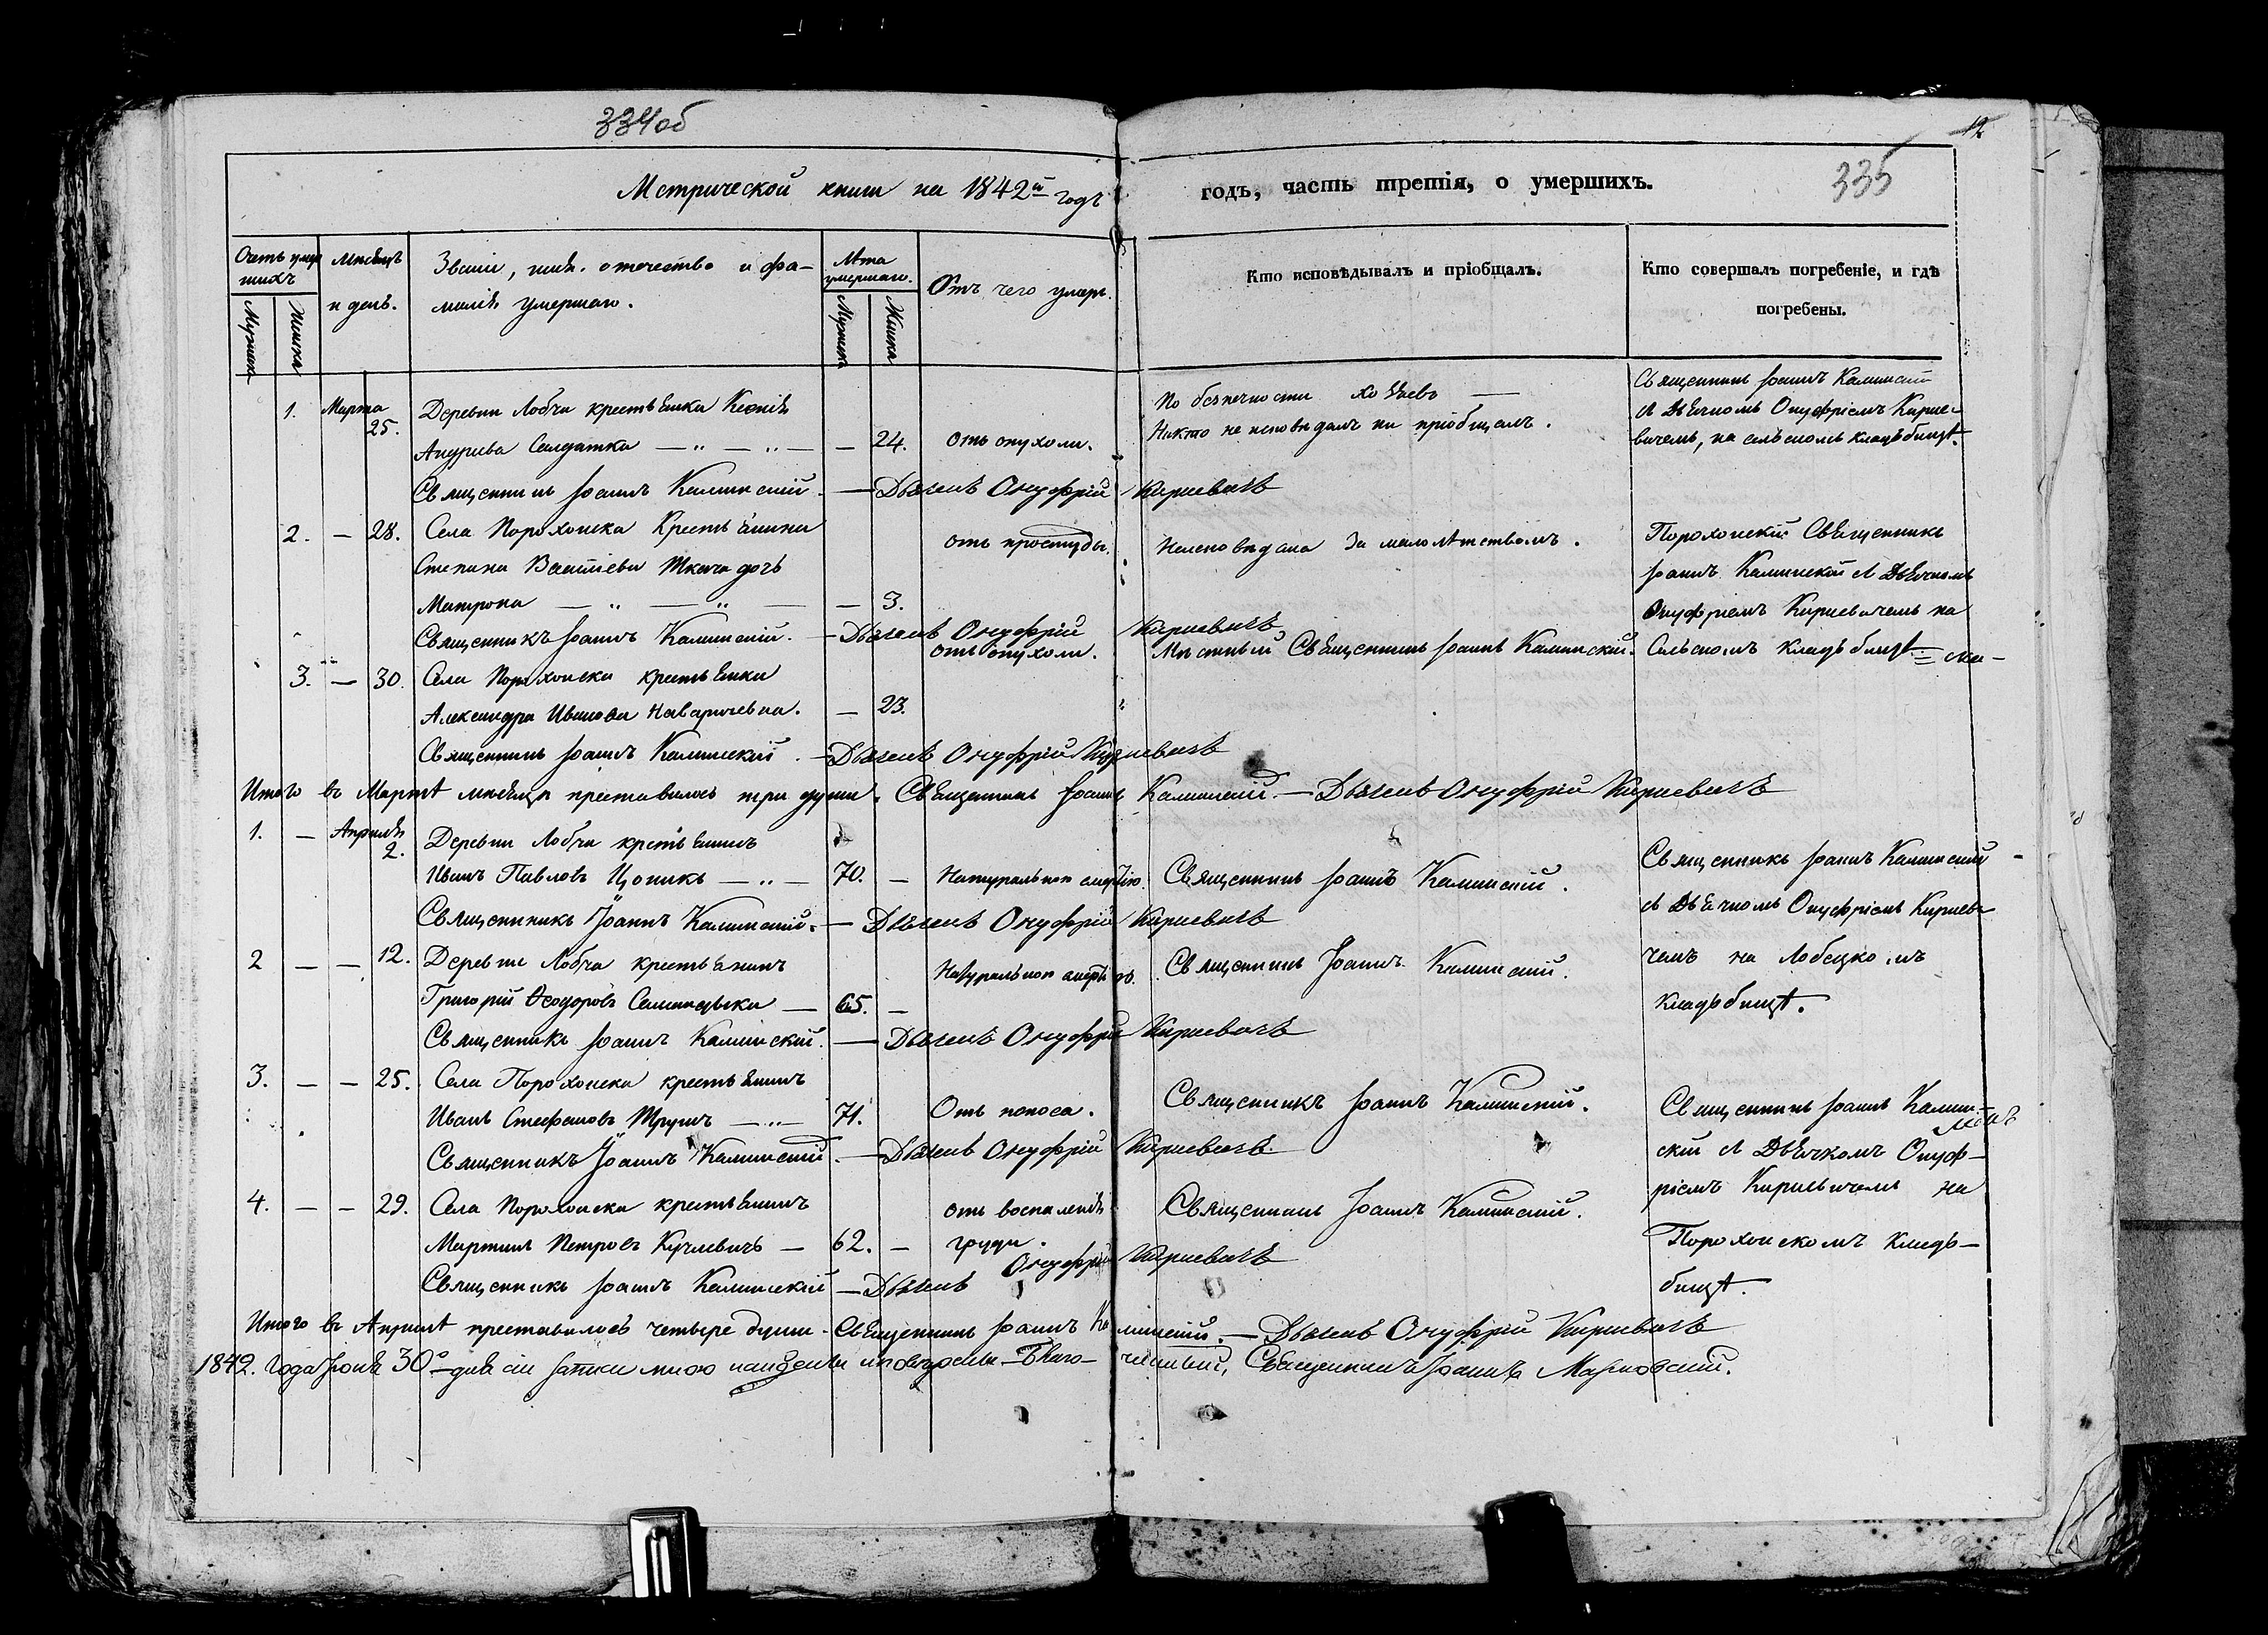 334об
12
335
Метрической книги на 1842й годъ
годъ, часть третія, о умершихъ.
Счетъ умершихъ
Мужеска
Женска
Мѣсяцъ и день.
Званіе, имя, отечество и фамилія умершаго.
Лѣта умершаго.
Мужеска
Женска
Отъ чего умеръ.
Кто исповѣдывалъ и пріобщалъ.
Кто совершалъ погребеніе, и гдѣ
погребены.
1. Марта 25. Деревни Лобча крестьянка
Андреева Салдатка — „ — „ — — 24. отъ опухоли.
По безпечности —
Никто не исповѣдалъ ни пріобщалъ.
Священникъ Іоаннъ Калинскій
съ Дьячкомъ Онуфріемъ Кирие-
вичемъ, на сельскомъ кладбищѣ.
Священникъ Іоаннъ Калинскій. — Дьячекъ Онуфрій Кириевичъ
2. — 28. Села Порохонска Крестьянина
Степана Ткача дочь
Матрона — „ — „ — — 3.
отъ простуды.
Неисповѣдана за малолѣтствомъ.
Порохонскій Священникъ
Іоаннъ Калинскій съ Дьячкомъ
Онуфріемъ Кириевичемъ на
Сельскомъ кладбищѣ.
Священникъ Іоаннъ Калинскій. — Дьячекъ Онуфрій Кириевичъ
3. — 30. Села Порохонска крестьянка
Александра Иванова — 23.
отъ опухоли.
Мѣстный Священникъ Іоаннъ Калинскій.
Священникъ Іоаннъ Калинскій. — Дьячекъ Онуфрій Кириевичъ
Итого въ Мартѣ мѣсяцѣ преставилось три души. Священникъ Іоаннъ Калинскій. — Дьячекъ Онуфрій Кириевичъ
1. — Апрѣля 2. Деревни Лобча крестьянинъ
Иванъ Павловъ Цопикъ — „ — 70. — Натуральною смертію.
Священникъ Іоаннъ Калинскій.
Священникъ Іоаннъ Калинскій
съ Дьячкомъ Онуфріемъ Кириеви-
чемъ на Лобецкомъ
кладбищѣ.
Священникъ Іоаннъ Калинскій. — Дьячекъ Онуфрій Кириевичъ
2 — — 12. Деревни Лобча крестьянинъ
Григорій Ѳеодоровъ — 65. —
Натуральною смертію.
Священникъ Іоаннъ Калинскій.
Священникъ Іоаннъ Калинскій. — Дьячекъ Онуфрій Кириевичъ
3. — — 25. Села Порохонска крестьянинъ
Иванъ Стефановъ — „ — 71. Отъ поноса.
Священникъ Іоаннъ Калинскій.
Священникъ Іоаннъ Калин-
скій съ Дьячкомъ Онуф-
ріемъ Кириевичемъ на
Порохонскомъ кладъ-
бищѣ.
Священникъ Іоаннъ Калинскій. — Дьячекъ Онуфрій Кириевичъ.
4. — — 29. Села Порохонска крестьянинъ
Мартинъ Петровъ Кучлевичъ — 62. —
отъ воспаленія
груди.
Священникъ Іоаннъ Калинскій.
Священникъ Іоаннъ Калинскій — Дьячекъ Онуфрій Кириевичъ
Итого въ Апрѣлѣ преставилось четыре души. Священникъ Іоаннъ Калинскій. — Дьячекъ Онуфрій Кириевичъ
1842. Года Іюня 30го дня сіи мною Благочинный, Священникъ Іоаннъ